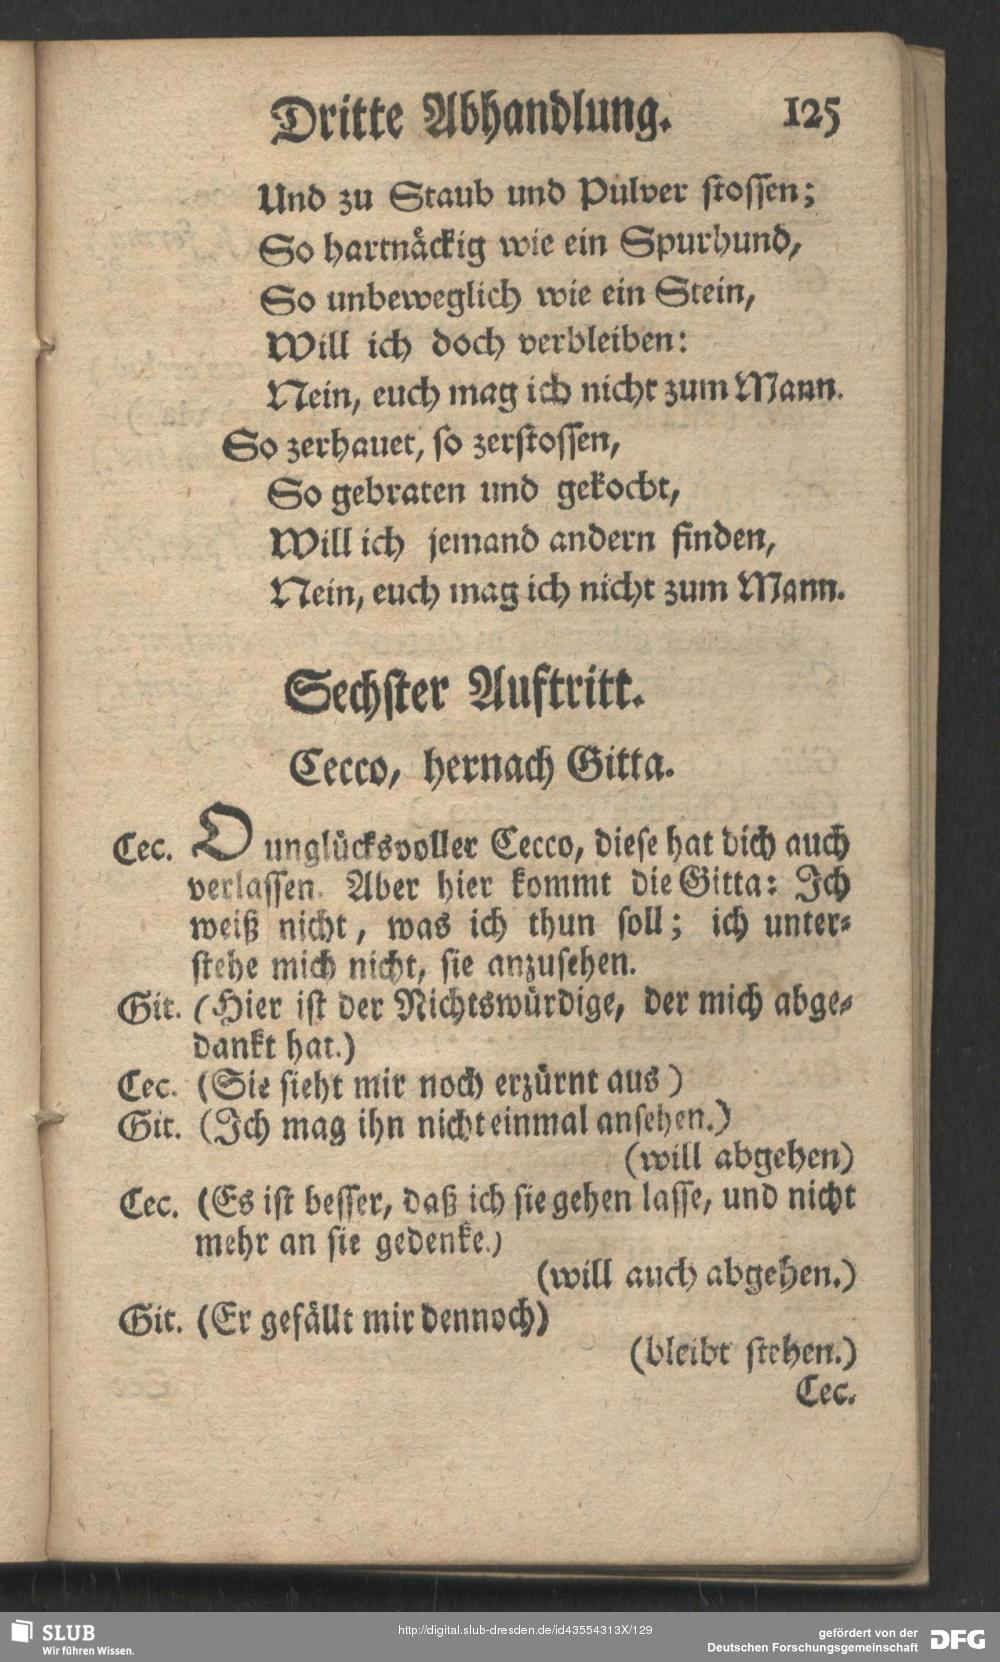 Dritte Abhandlung. 125
Und zu Staub und Pulver stossen;
So hartnäckig wie ein Spurhund,
So unbeweglich wie ein Stein,
Will ich doch verbleiben:
Nein, euch mag ich nicht zum Mann.
So zerhauet, so zerstossen,
So gebraten und gekocht,
Will ich jemand andern finden,
Nein, euch mag ich nicht zum Mann.
Sechster Auftritt.
Cecco, hernach Gitta.
Cec. O unglücksvoller Cecco, diese hat dich auch
verlassen. Aber hier kommt die Gitta: Ich
weiß nicht, was ich thun soll; ich unter-
stehe mich nicht, sie anzusehen.
Git. (Hier ist der Nichtswürdige, der mich abge-
dankt hat.)
Cec. (Sie sieht mir noch erzürnt aus)
Git. (Ich mag ihn nicht einmal ansehen.)
(will abgehen)
Cec. (Es ist besser, daß ich sie gehen lasse, und nicht
mehr an sie gedenke.)
(will auch abgehen.)
Git. (Er gefällt mir dennoch)
(bleibt stehen.)
Cec.
SLUB
Wir führen Wissen.
http://digital.slub-dresden.de/id43554313X/129
gefördert von der
Deutschen Forschungsgemeinschaft
DFG